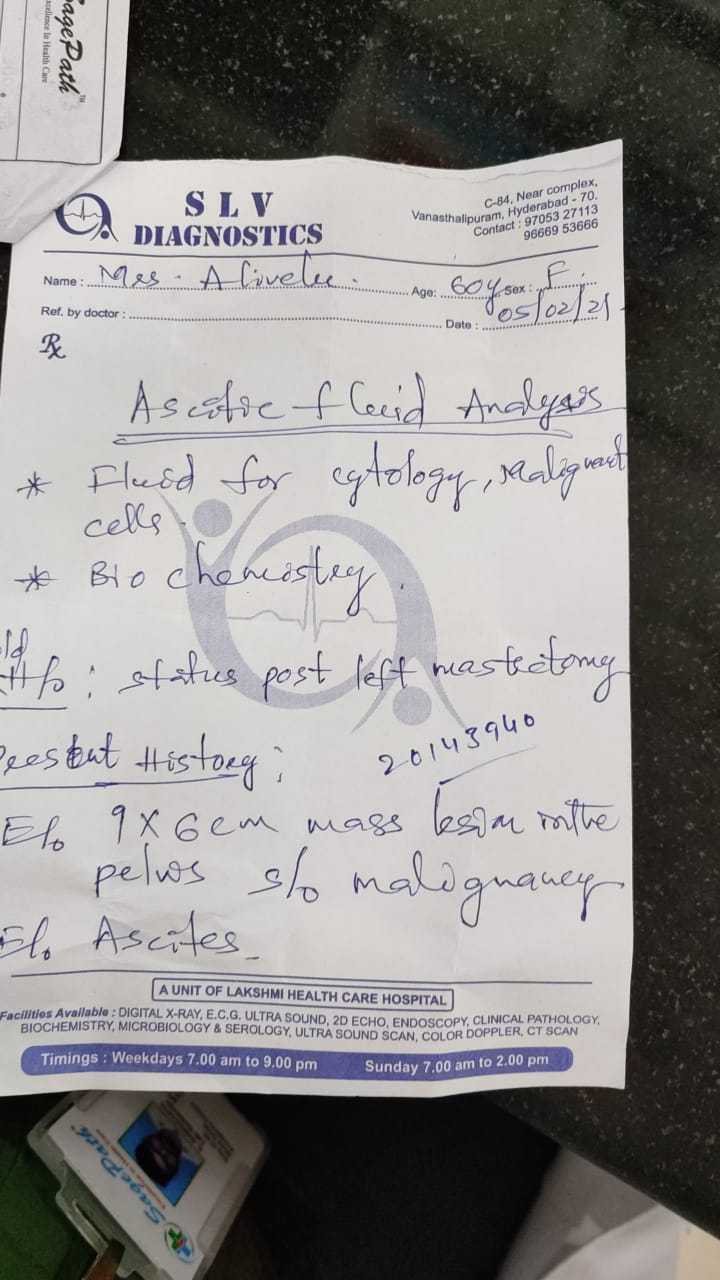 SagePath™
xcellence In Health Care
S L V
DIAGNOSTICS
C-84, Near complex,
Vanasthalipuram, Hyderabad - 70.
Contact : 97053 27113
96669 53666
Name : Mrs. Alivelu. Age: 60y Sex : F
Ref. by doctor : Date : 05/02/21
Rx
Ascitic fluid Analysis
* Fluid for cytology, Malignant
cells.
* Biochemistry.
old
H/o : status post left mastectomy
Present History :
20143940
E/o 9 X 6 cm mass lesion in the
pelvis s/o malignancy
E/o Ascites
A UNIT OF LAKSHMI HEALTH CARE HOSPITAL
Facilities Available : DIGITAL X-RAY, E.C.G. ULTRA SOUND, 2D ECHO, ENDOSCOPY, CLINICAL PATHOLOGY,
BIOCHEMISTRY, MICROBIOLOGY & SEROLOGY, ULTRA SOUND SCAN, COLOR DOPPLER, CT SCAN
Timings : Weekdays 7.00 am to 9.00 pm Sunday 7.00 am to 2.00 pm
SagePath